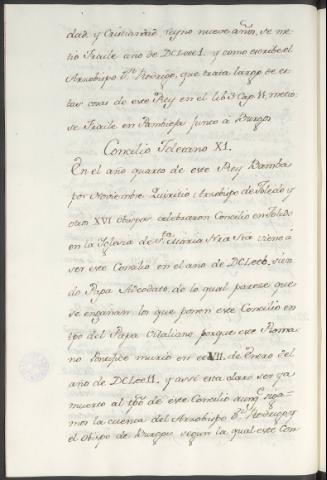 dad y Cristiandad reyno nueve años, se me-
tio Fraile año de DCLecc1. y como escribe el
Arzobispo Dn Rodrigo, que trata largo de es-
tas cosas de este Rey en el lib 3 Cap. 11, metio-
se Fraile en Pampliega junto á Burgos
Concilio Toletano XI.
En el año quarto de este Rey Wamba
por Noviembre Quiricio Arzobispo de Toledo y
otros XVI Obispos celebraron Concilio en Toledo
en la Iglesia de Sta Maria Nra Sra viene á
ser este Concilio en el año de DCLecc6. sien
do Papa Adeodato, de lo qual parece que
se engañan los que ponen este Concilio en
tpo del Papa Vitaliano porque este Roma-
no Pontifice murio en VII. de Enero del
año de DCLecc11. y assi esta claro ser ya
muerto al tpo de este Concilio aunq siga-
mos la cuenta del Arzobispo Dn Rodrigo, y
el Obispo de Burgos segun la qual este Con